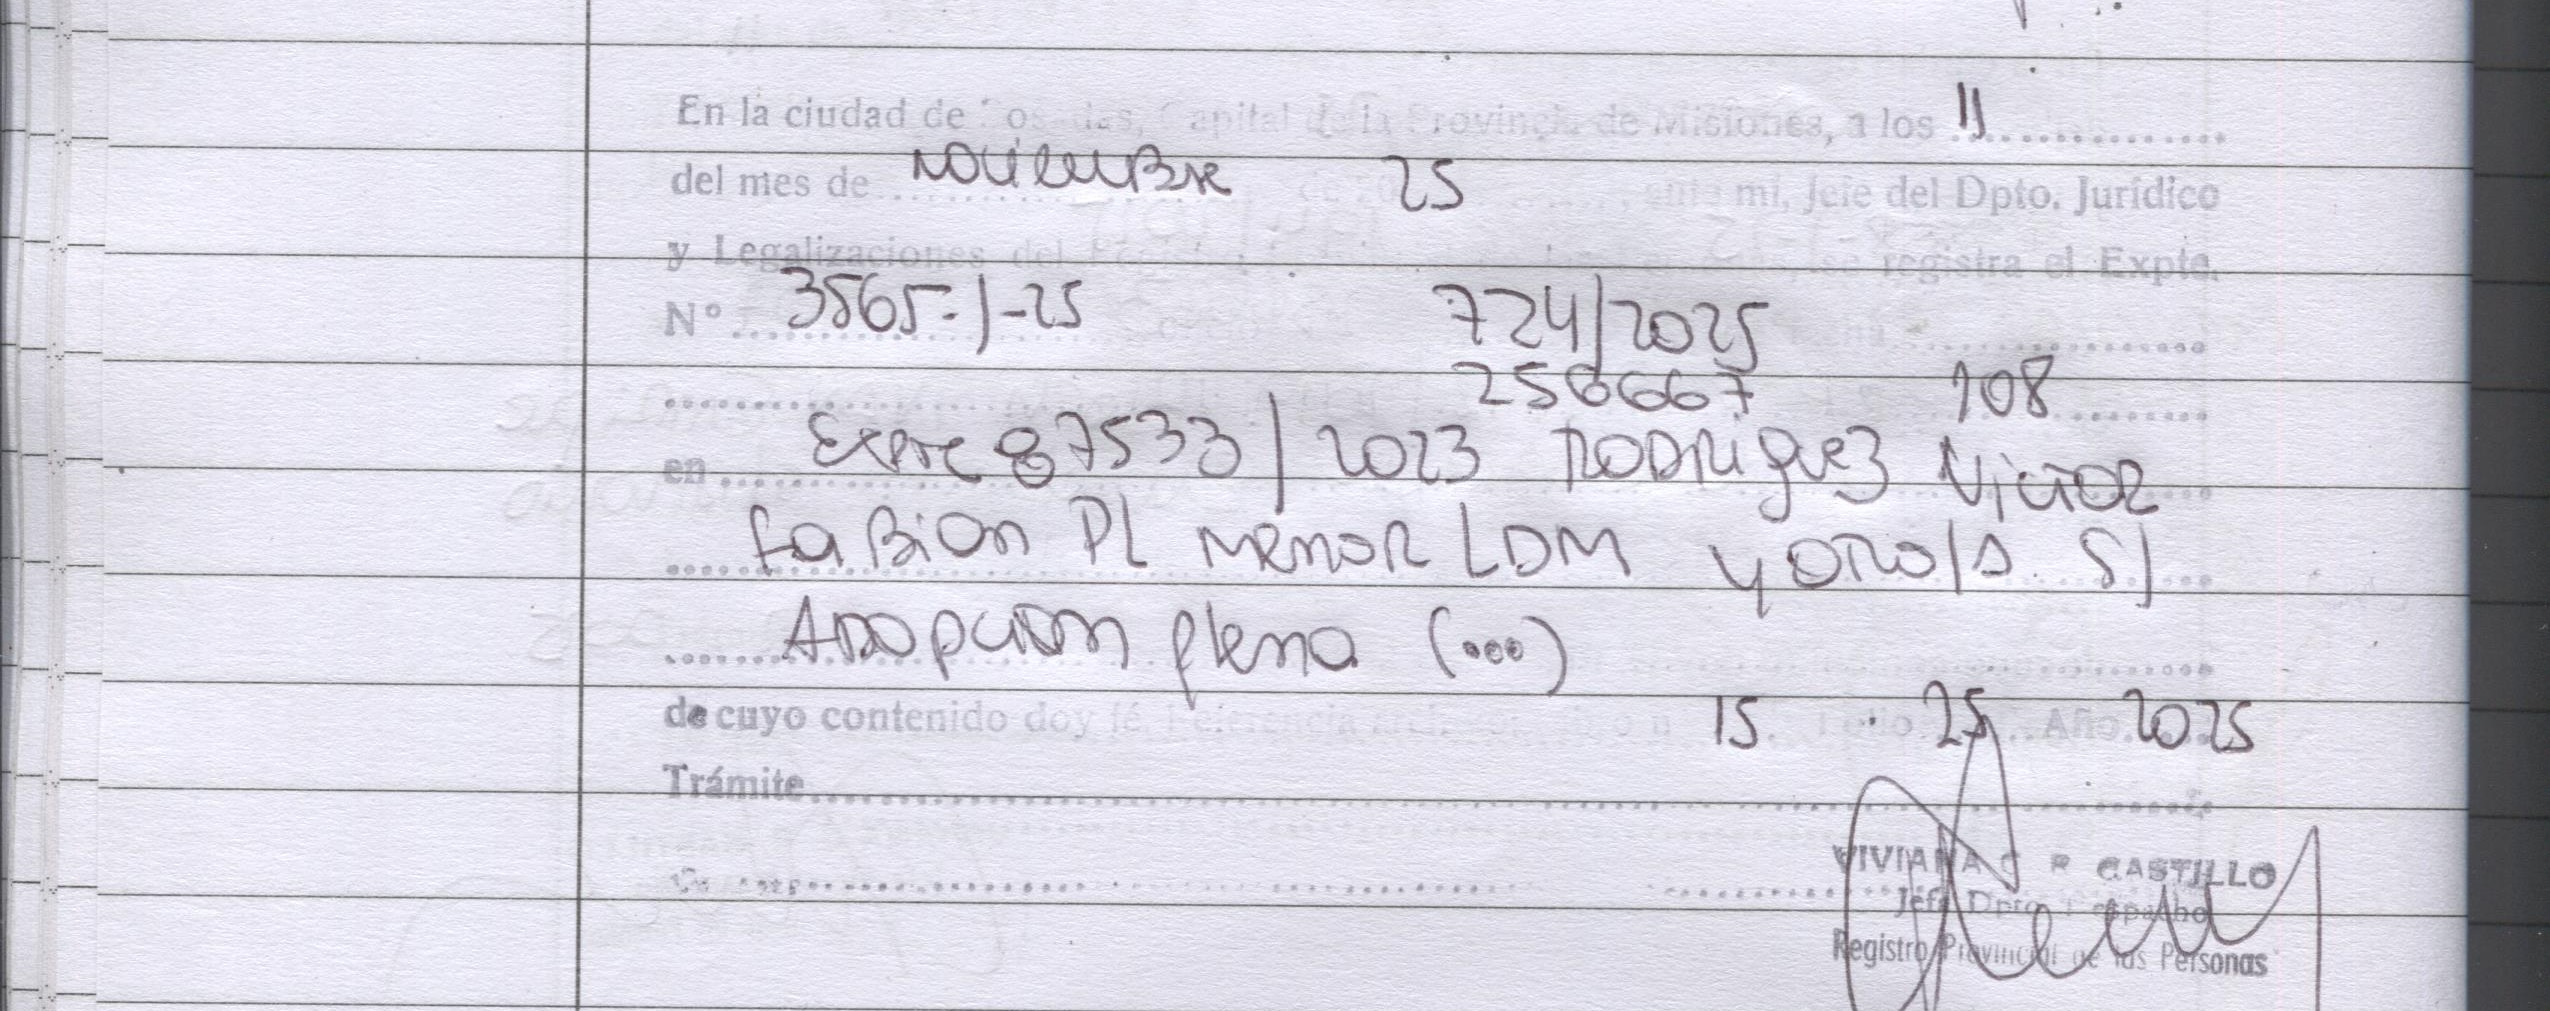 En la ciudad de Posadas, Capital de la Provincia de Misiones, a los 11
del mes de noviembre de 20 25, ante mi, Jefe del Dpto. Jurídico
y Legalizaciones del se registra el Expte.
Nº 3565-/-25 724/2025
256667 108
en Expte 87533/2023 RODRIGUEZ VICTOR
FABIAN P/ MENOR LDM Y OTRO/A S/
ADOPCION plena (...)
de cuyo contenido doy fé, Referencia 15 Folio 25 Año 2025
Trámite
VIVIANA C R CASTILLO
Jefa Dpto Despacho
Registro Provincial de las Personas